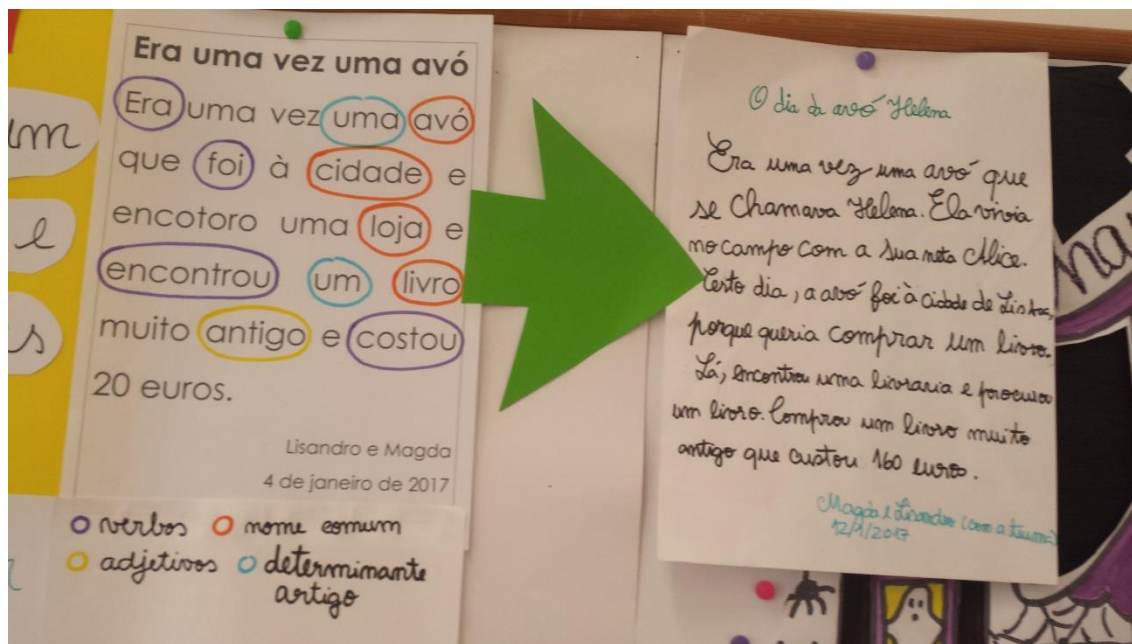 um
l
s
Era uma vez uma avó
Era uma vez uma avó
que foi à cidade e
encotoro uma loja e
encontrou um livro
muito antigo e costou
20 euros.
Lisandro e Magda
4 de janeiro de 2017
verbos nome comum
adjetivos determinante
artigo
O dia da avó Helena
Era uma vez uma avó que
se chamava Helena. Ela vivia
no campo com a sua neta Alice.
Certo dia, a avó foi à cidade de Lisboa,
porque queria comprar um livro.
Lá, encontrou uma livraria e procurou
um livro. Comprou um livro muito
antigo que custou 160 euros.
Magda e Lisandro (com a turma)
12/1/2017